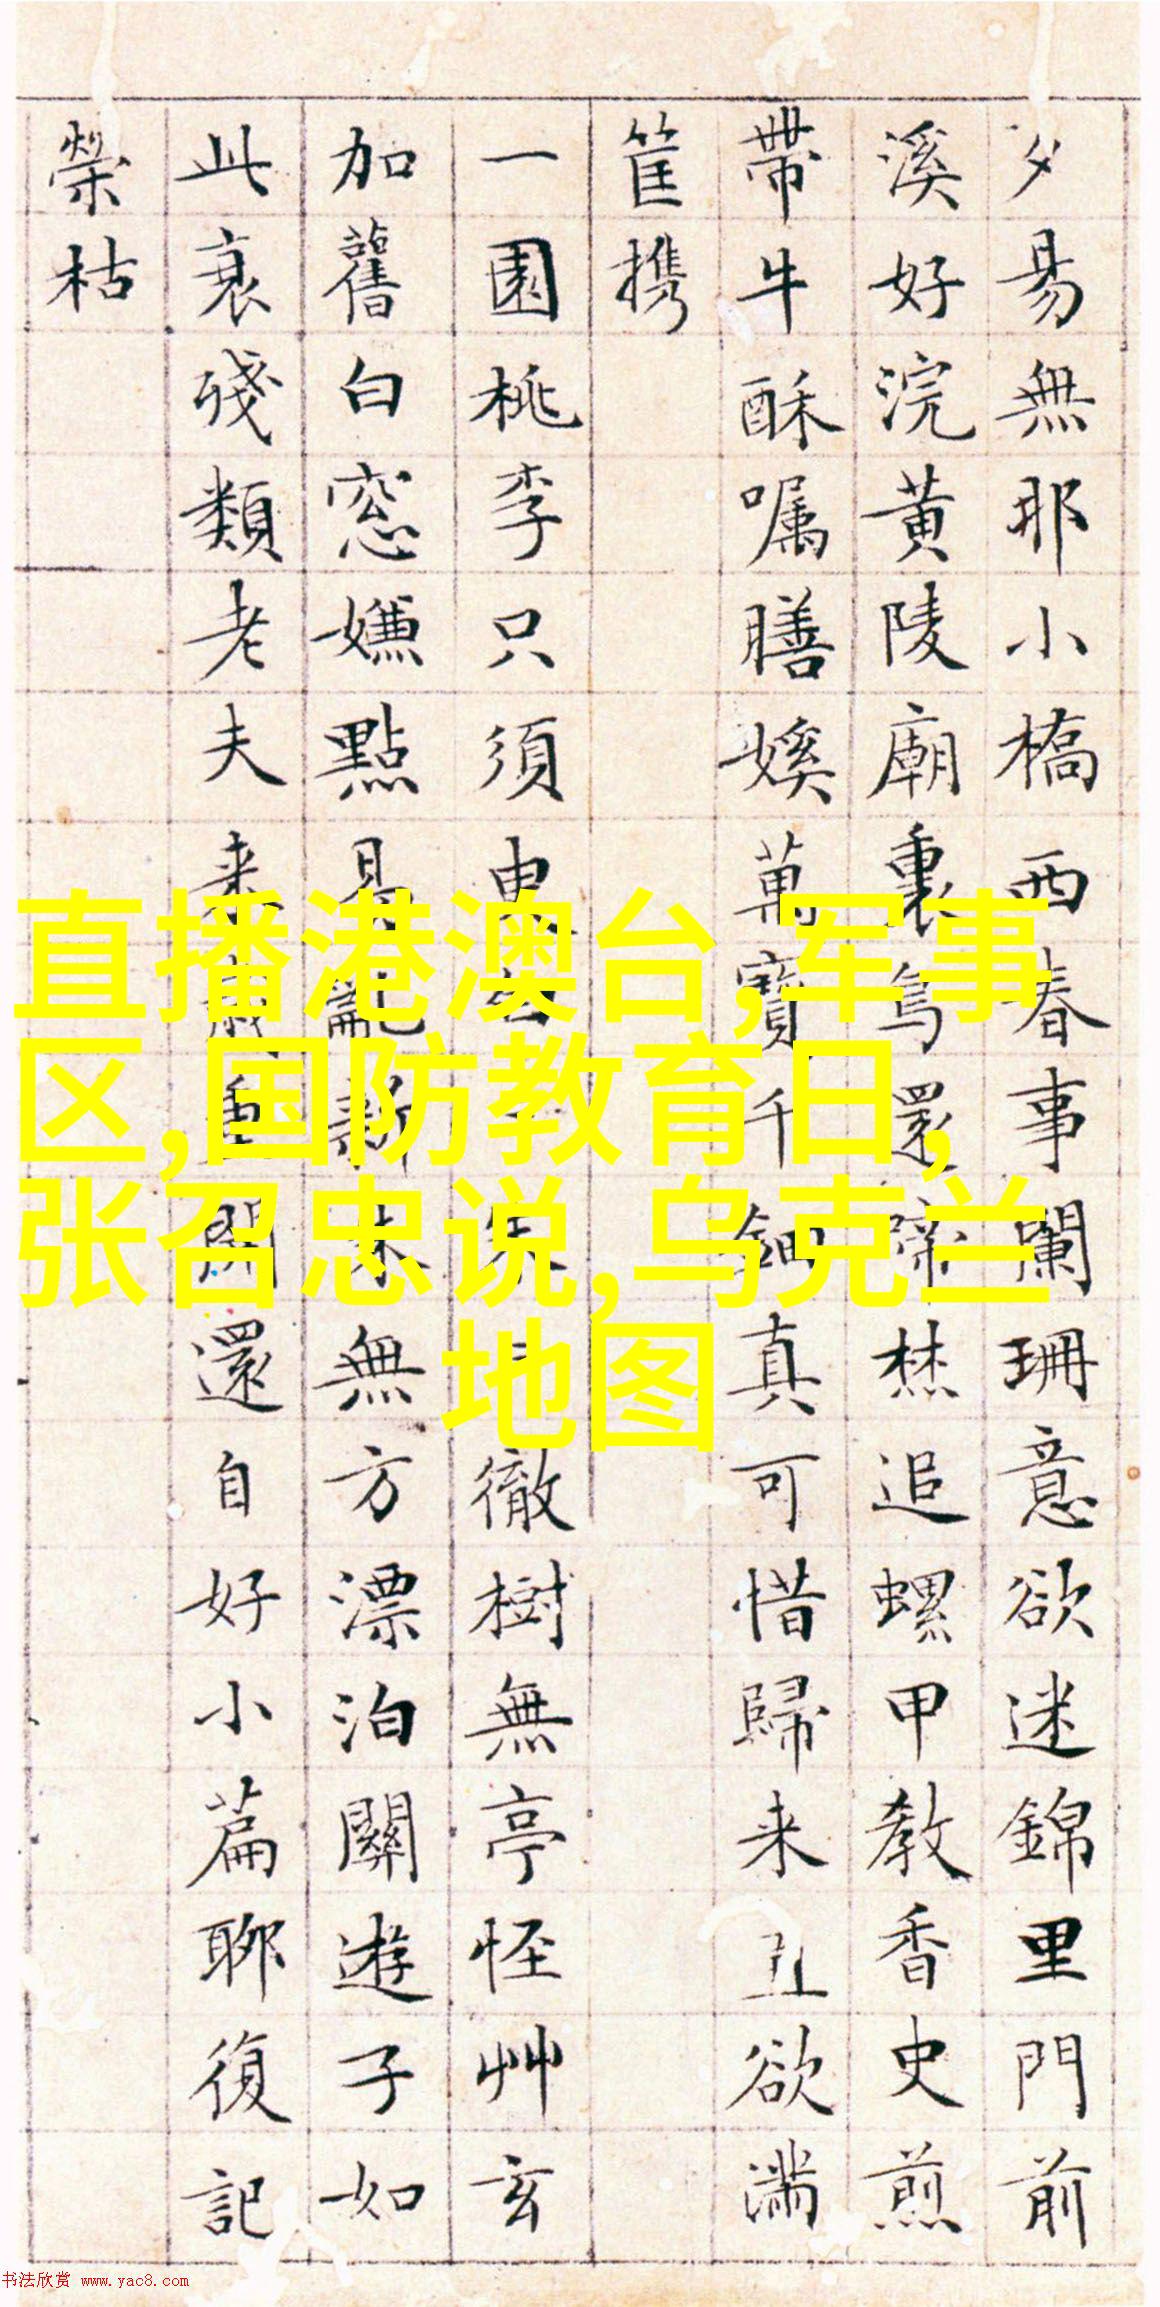 夕易無耶小橋西春事闌珊意欲迷錦里門前
溪好浣黄陵廟裏鳥還啼楚追螺甲教香史煎
帶牛酥嘱膳娭萬寶千鈿真可惜歸来丑欲満
筐携
一園桃李只須臾白 朱 徹樹無亭怪艸玄
加舊白窓嫌點易亂 新 無方漂泊關遊子如
此衰残類老夫来歳重開還自好小篇聊復記
榮枯
直播港澳台,军事
区,国防教育日,
张召忠说,乌克兰
地图
书法欣赏 www.yac8.com